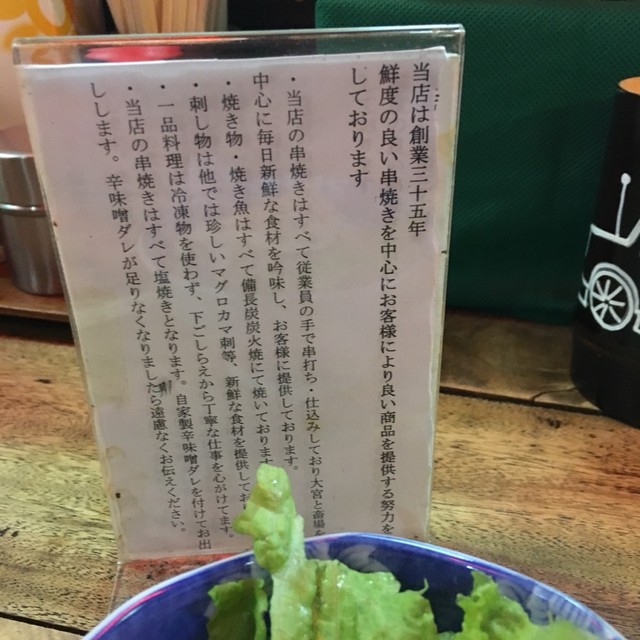 当店は創業三十五年
鮮度の良い串焼きを中心にお客様により良い商品を提供する努力を
しております
・当店の串焼きはすべて従業員の手で串打ち・仕込みしており大宮と斎場を
中心に毎日新鮮な食材を吟味し、お客様に提供しております。
・焼き物・焼き魚はすべて備長炭炭火焼にて焼いておりま
・刺し物は他では珍しいマグロカマ刺等、新鮮な食材を提供してお
・一品料理は冷凍物を使わず、下ごしらえから丁寧な仕事を心がけてます。
・当店の串焼きはすべて塩焼きとなります。自家製辛味噌ダレを付けてお出
しします。辛味噌ダレが足りなくなりましたら遠慮なくお伝えください。